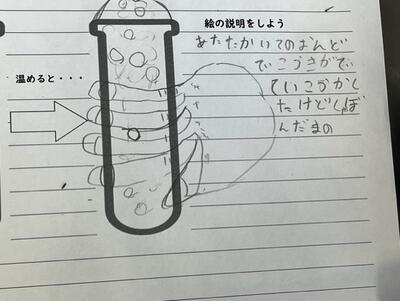 絵の説明をしよう
温めると・・・
あたたかいてのおんど
でこうきがで
ていこうがかく
たけどしぼ
んだまの